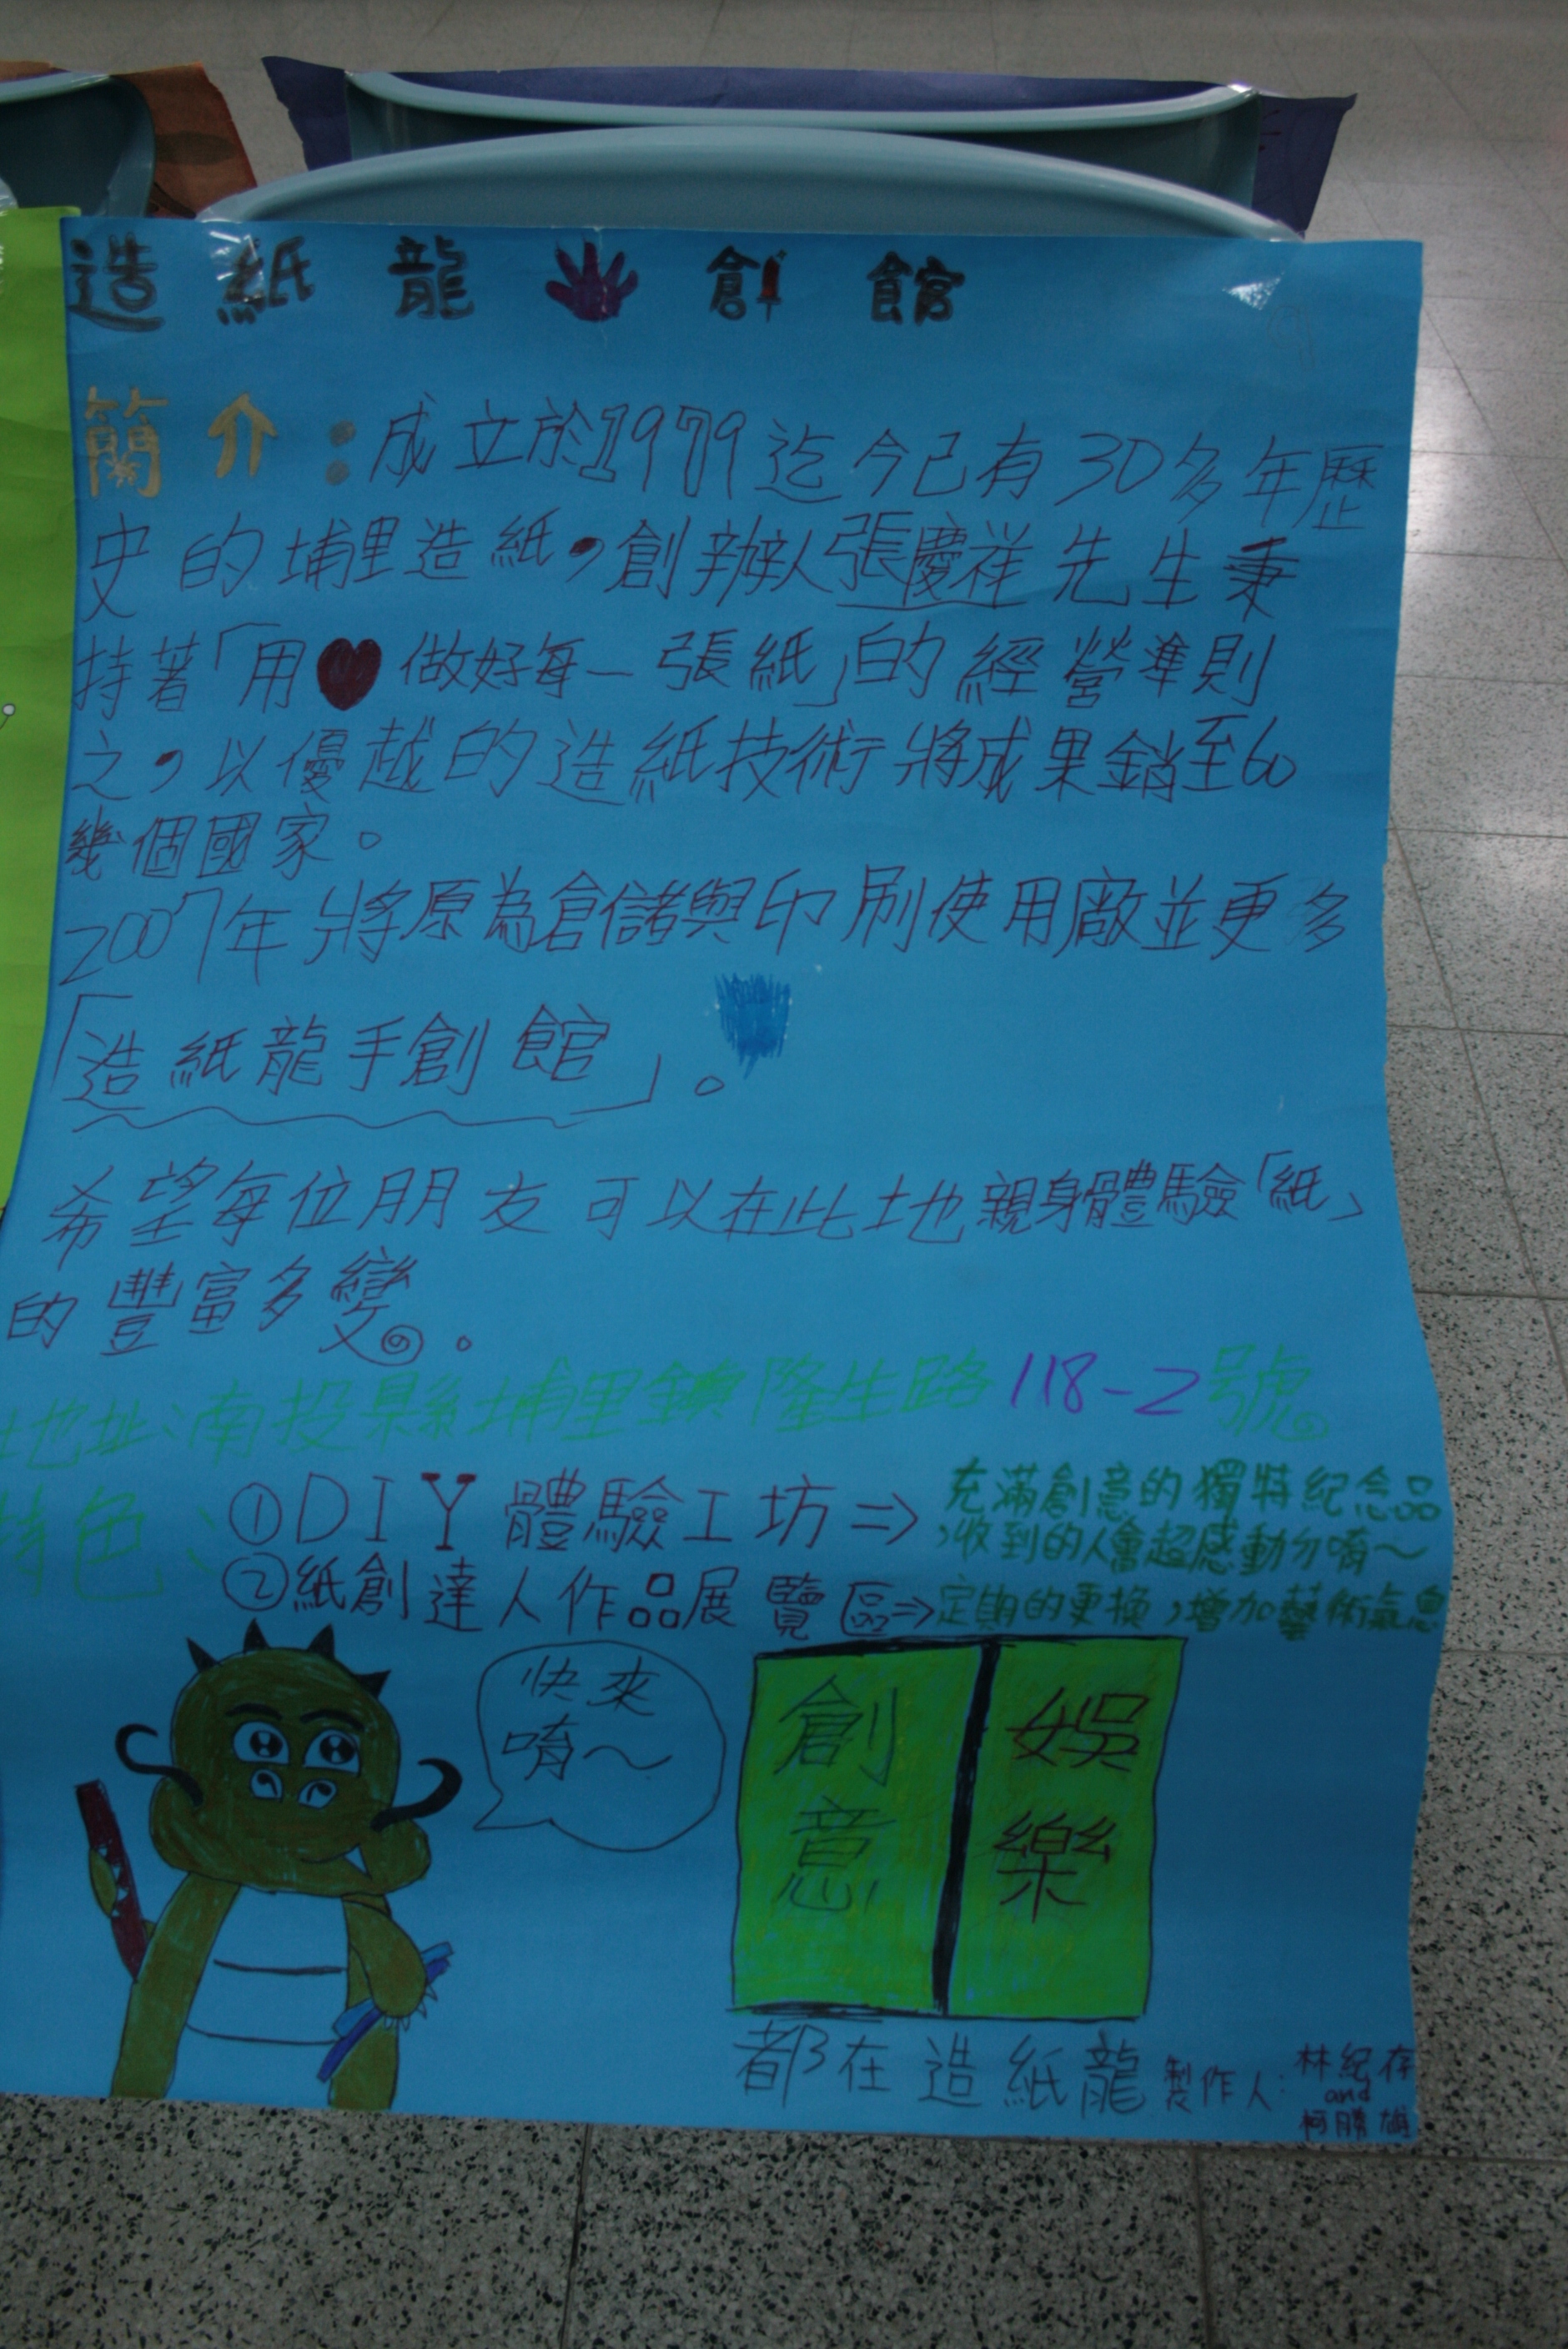 造紙龍創館
簡介：成立於1979迄今已有30多年歷
史的埔里造紙，創辦人張慶祥先生秉
持著「用做好每一張紙」的經營準則
之，以優越的造紙技術將成果銷至60
幾個國家。
2007年將原為倉儲與印刷使用廠並更多
「造紙龍手創館」。
希望每位朋友可以在此地親身體驗「紙」
的豐富多變。
地址：南投縣埔里鎮隆生路118-2號。
特色：
①DIY體驗工坊⇒充滿創意的獨特紀念品
，收到的人會超感動ㄉ唷～
②紙創達人作品展覽區⇒定期的更換，增加藝術氣息
快來
唷～
創意
娛樂
都在造紙龍
製作人：
林紀存
and
柯勝雄